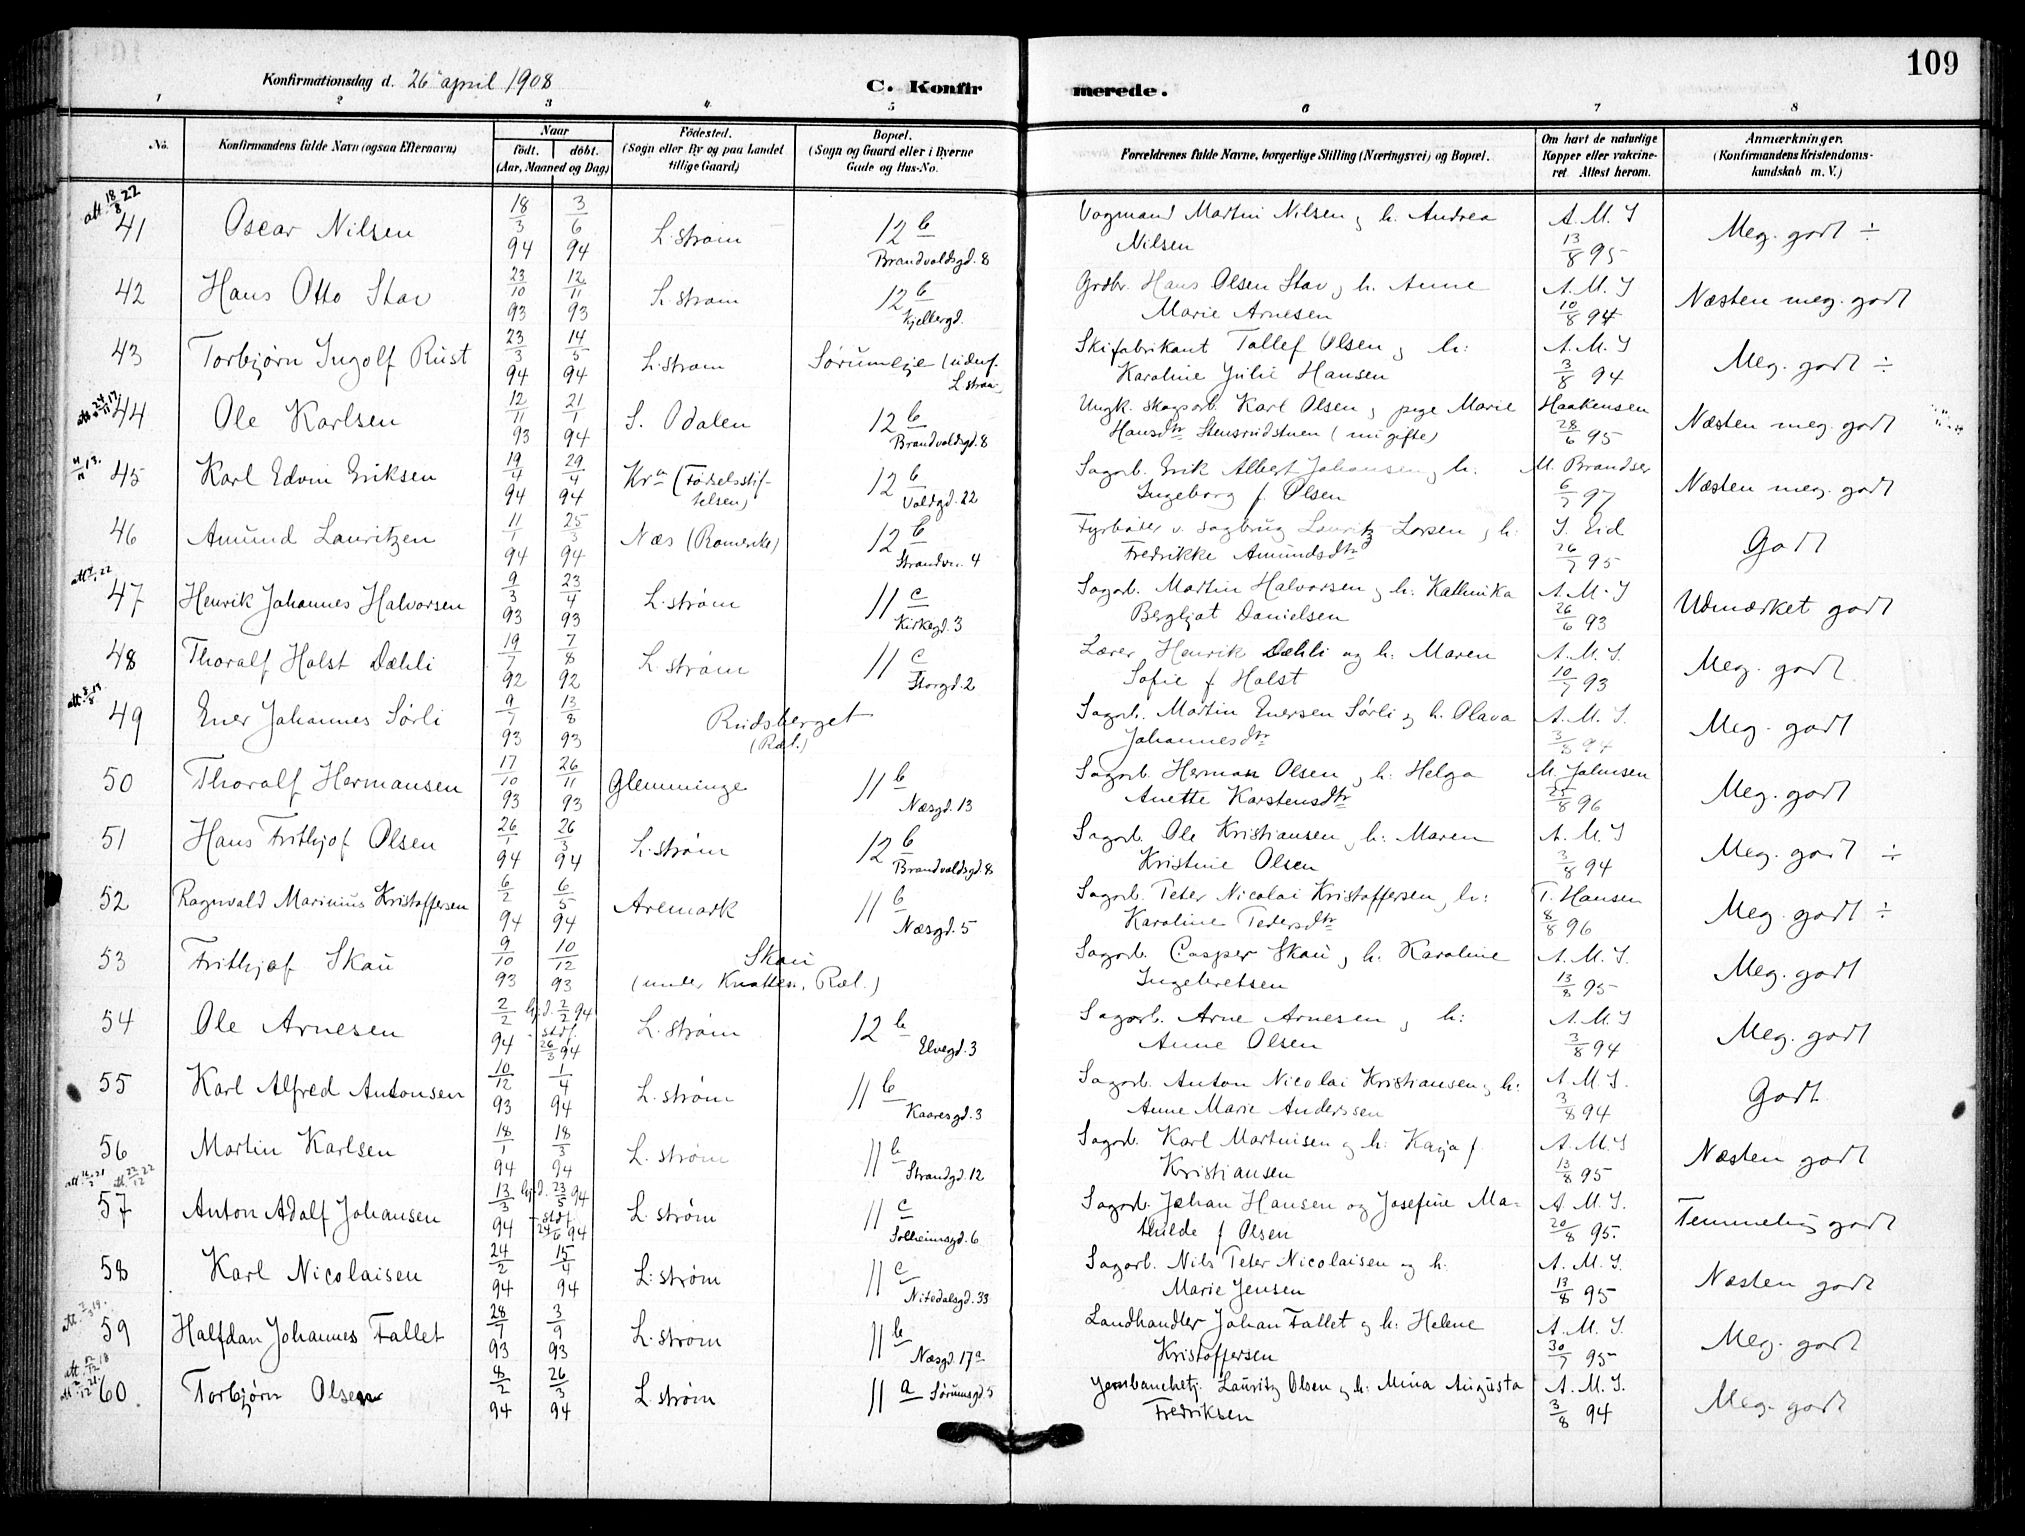 109
Konfirmationsdag d. 26 april 1908
C. Konfirmerede.
1 2 3 4 5 6 7 8
No.
Konfirmandens fulde Navn (ogsaa Efternavn)
Naar
født. døbt.
(Aar, Maaned og Dag)
Fødested.
(Sogn eller By og paa Landet
tillige Gaard)
Bopæl.
(Sogn og Gaard eller i Byerne
Gade og Hus-No.
Forældrenes fulde Navne, borgerlige Stilling (Næringsvei) og Bopæl.
Om havt de naturlige
Kopper eller vakcine-
ret. Attest herom.
Anmærkninger.
(Konfirmandens Kristendoms-
kundskab m. V.)
att. 18/8 22
41 Oscar Nilsen 18/3 94 3/6 94 L. strøm 12 b Brandvoldsgd. 8 Vogmand Martin Nilsen og h. Andrea A. M. S
Nilsen 13/8 95 Meg. godt ÷
42 Hans Otto Stav 23/10 93 12/11 93 L. strøm 12 b Kjelbergd. Grdbr. Hans Olsen Stav og h. Anne A. M. S
Marie Arnesen 10/8 94 Næsten meg. godt
43 Torbjørn Ingolf Rust 23/3 94 14/5 94 L. strøm Sørumeje (underf. L. strøm) Skifabrikant Tollef Olsen og h: A. M. S
Karoline Julie Hansen 3/8 94 Meg. godt ÷
44 Ole Karlsen 12/11 93 21/1 94 S. Odalen 12 b Brandvoldsgd. 8 Ungk. skogsarb. Karl Olsen og pige Marie Haakensen
Hansdtr Stensrudstuen (nu gifte) 28/6 95 Næsten meg. godt
45 Karl Edvin Eriksen 19/4 94 29/4 94 Kra (Fødselsstiftelsen) 12 b Voldgd. 22 Sagarb. Erik Albert Johansen og h. M. Brandser
Ingeborg f. Olsen 6/7 97 Næsten meg. godt
46 Amund Lauritzen 11/1 94 25/3 94 Næs (Romerike) 12 b Strandv. 4 Fyrbøter v. sagbrug Lauritz Larsen og h: S. Eid
Fredrikke Amundsdtr 26/7 95 Godt
47 Henrik Johannes Halvorsen 9/3 93 23/4 93 L. strøm 11 c Kirkegd. 3 Sagarb. Martin Halvorsen og h: Kathinka A. M. S
Bergljot Danielsen 26/6 93 Udmærket godt
48 Thoralf Holst Dæhli 19/7 92 7/8 92 L. strøm 11 c Storgd. 2 Lærer Henrik Dæhli og h: Maren A. M. S.
Sofie f Holst 10/7 93 Meg. godt
49 Ener Johannes Sørli 9/7 93 13/8 93 Rudsberget (Ræl.) Sagarb. Martin Enersen Sørli og h. Olava A. M. S.
Johannesdtr 3/8 94 Meg. godt
50 Thoralf Hermansen 17/10 93 26/11 93 Glemminge 11 b Næsgd. 13 Sagarb. Herman Olsen og h: Helga M. Johnsen
Anette Karstensdtr 25/8 96 Meg. godt
51 Hans Frithjof Olsen 26/1 94 26/3 94 L. strøm 12 b Brandvoldsgd. 8 Sagarb. Ole Kristiansen og h: Maren A. M. S
Kristine Olsen 3/8 94 Meg. godt ÷
52 Ragnvald Marinius Kristoffersen 6/2 94 6/5 94 Aremark 11 b Næsgd. 5 Sagarb. Peter Nicolai Kristoffersen og h: T. Hansen
Karoline Pedersdtr 8/8 96 Meg. godt ÷
53 Frithjof Skau 9/10 93 10/12 93 Skau (under Knatten, Ræl.) Sagarb. Casper Skau og h. Karoline A. M. S.
Ingebretsen 13/8 95 Meg. godt
54 Ole Arnesen 2/2 94 hj.d. 2/2 94 stdf 26/3 94 L. strøm 12 b Elvegd. 3 Sagarb. Arne Arnesen og h: A. M. S
Anne Olsen 3/8 94 Meg. godt
55 Karl Alfred Antonsen 10/12 93 1/4 94 L. strøm 11 b Kaaresgd. 3 Sagarb. Anton Nicolai Kristiansen og h: A. M. S.
Anne Marie Anderssen 3/8 94 Godt
56 Martin Karlsen 18/1 94 18/3 94 L. strøm 11 b Strandgd. 12 Sagarb. Karl Martinisen og h: Kaja f. A. M. S
Kristiansen 13/8 95 Næsten godt
57 Anton Adolf Johansen 13/3 94 hj.d. 23/5 94 stdf 24/6 94 L. strøm 11 c Solheimsgd. 6 Sagarb. Johan Hansen og Josefine Ma- A. M. S.
thilde f Olsen 20/8 95. Temmelig godt
58 Karl Nicolaisen 24/2 94 15/4 94 L. strøm 11 c Nitedalsgd. 33 Sagarb. Nils Peter Nicolaisen og h. A. M. S.
Marie Jensen 13/8 95 Næsten godt
59 Halfdan Johannes Fallet 28/7 93 3/9 93 L. strøm 11 b Næsgd. 17a Landhandler Johan Fallet og h: Helene A. M. S.
Kristoffersen 30/7 95 Meg. godt
60 Torbjørn Olsen 8/2 94 26/3 94 L. strøm 11 a Sørumsgd. 5 Jernbanebetj. Lauritz Olsen og h: Mina Augusta A. M. S.
Fredriksen 3/8 94 Meg. godt